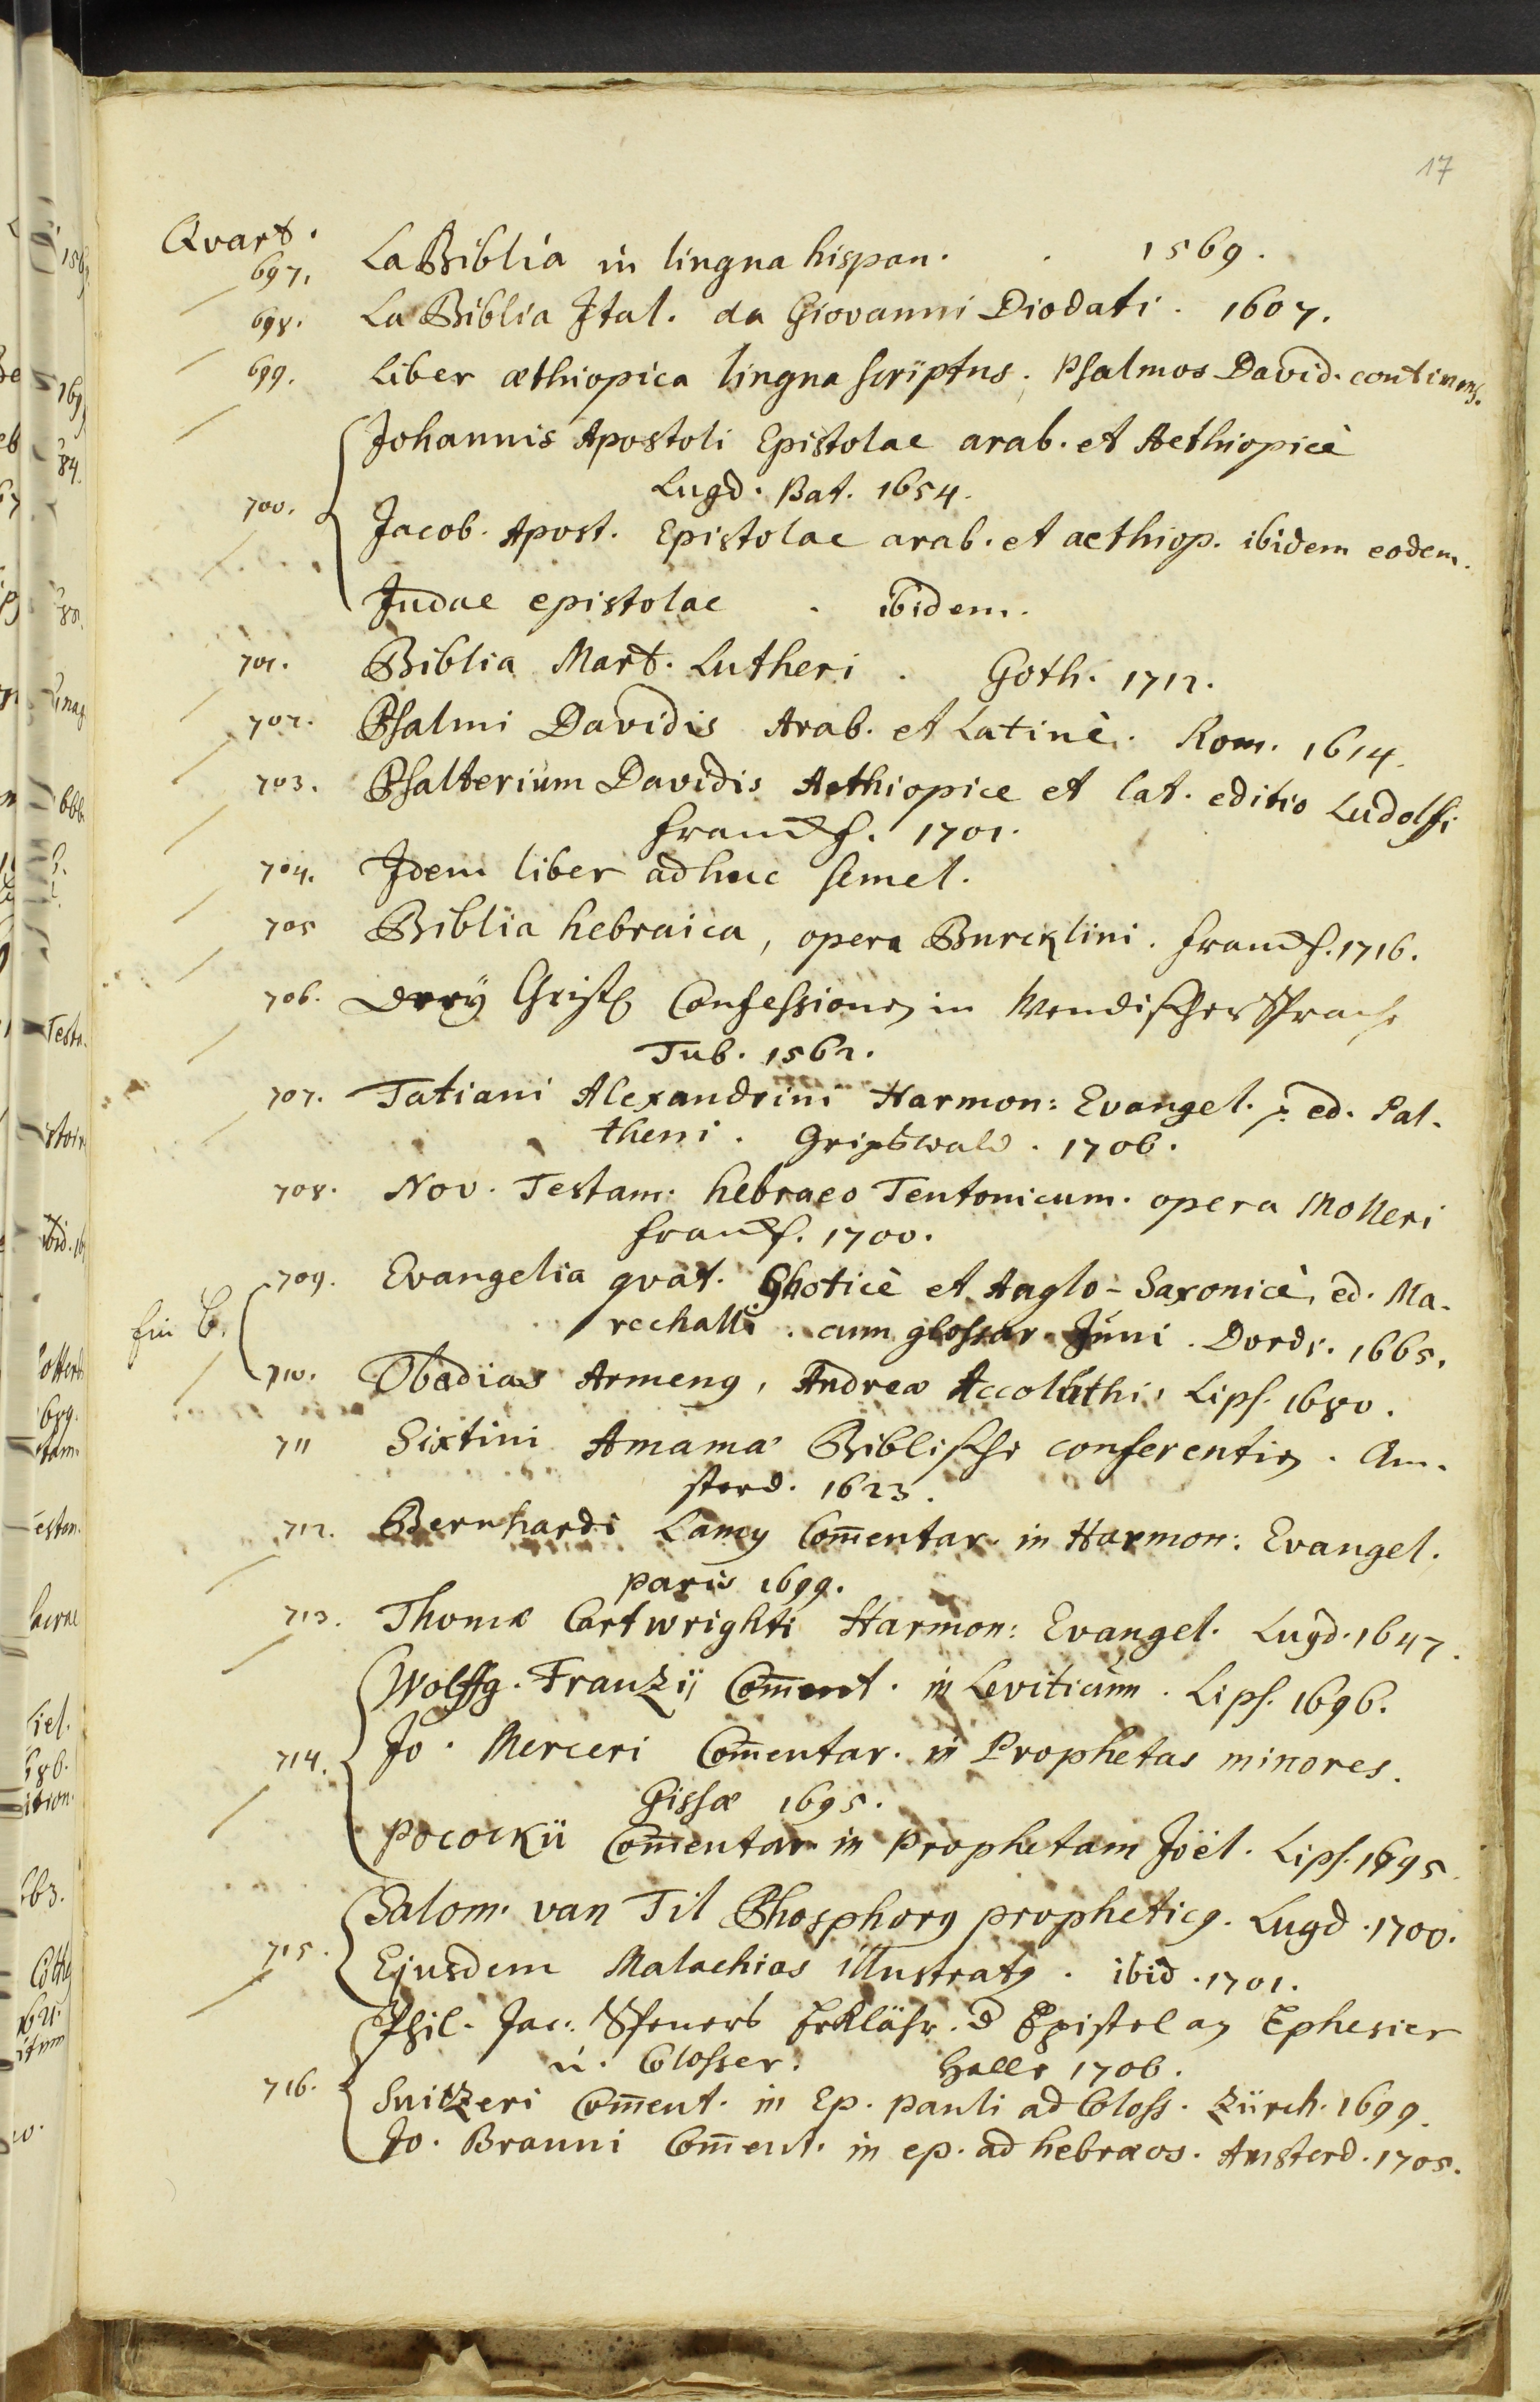 17
Qvart.
697. La Biblia in lingua hispan. . 1569.
698. La Biblia Ital. da Giovanni Diodati. 1607.
699. Liber æthiopica lingua scriptus, Psalmos David. continens.
Johannis Apostoli Epistolae arab. et Aethiopicè
Lugd. Bat. 1654.
700. Jacob. Apost. Epistolae arab. et aethiop. ibidem eodem.
Judae epistolae . ibidem.
701. Biblia Mart. Lutheri . Goth. 1712.
702. Psalmi Davidis Arab. et Latinè. Rom. 1614.
703. Psalterium Davidis Aethiopice et lat. editio Ludolfi
Francf. 1701.
704. Idem liber adhuc semel.
705 Biblia hebraica, opera Burcklini. Francf. 1716.
706. Drey Christl. Confessionen in Wendischer Sprache
Tub. 1562.
707. Tatiani Alexandrini Harmon: Evangel. ed. Pal-
theni. Gripswald. 1706.
708. Nov. Testam: hebraeo Teutonicum. opera Molleri
Francf. 1700.
709. Evangelia qvat. Ghoticè et Anglo-Saxonicè, ed. Ma-
rechalli. cum glossar. Juni. Dordr. 1665.
710. Obadias Armenq, Andreæ Accoluthi, Lips. 1680.
711 Sixtini Amama Biblische conferentien. Am-
sterd. 1623.
712. Bernhardi Lamy Com̄entar. in Harmon: Evangel.
Paris 1699.
713. Thomæ Cartwrighti Harmon: Evangel. Lugd. 1647.
Wolffg. Franzij Com̄ent. in Leviticum. Lips. 1696.
714. Jo. Merceri Com̄entar. in Prophetas minores.
Gissæ 1695.
Pocockii Com̄entar in Prophetam Joël. Lips. 1695.
Salom. van Til Phosphorq propheticq. Lugd. 1700.
715. Ejusdem Malachias illustratq. ibid. 1701.
Phil. Jac. Speners Erklähr. d Epistel an Ephesier
u. Colosser. Halle 1706.
716. Suizeri Com̄ent. in Ep. Pauli ad Coloss. Zürch. 1699.
Jo. Brauni Com̄ent. in ep. ad hebræos. Amsterd. 1705.